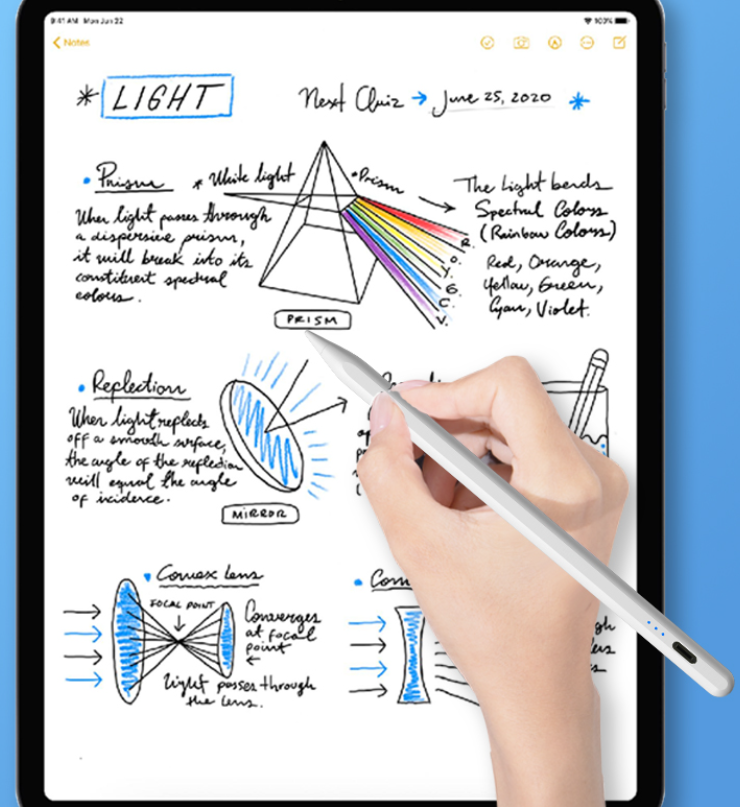 9:41 AM Mon Jun 22
100%
Notes
* LIGHT
Next Quiz → June 25, 2020 *
• Prism
* White light
• Prism
When light passes through
a dispersive prism,
it will break into its
constituent spectral
colours.
The Light bends
Spectral Colors
(Rainbow Colors)
Red, Orange,
Yellow, Green,
Cyan, Violet.
R.
O.
Y.
G.
C.
V.
PRISM
• Reflection
When light reflects
off a smooth surface,
the angle of the reflection
will equal the angle
of incidence.
MIRROR
• Convex Lens
FOCAL POINT
Converges
at focal
point
Light passes through
the lens.